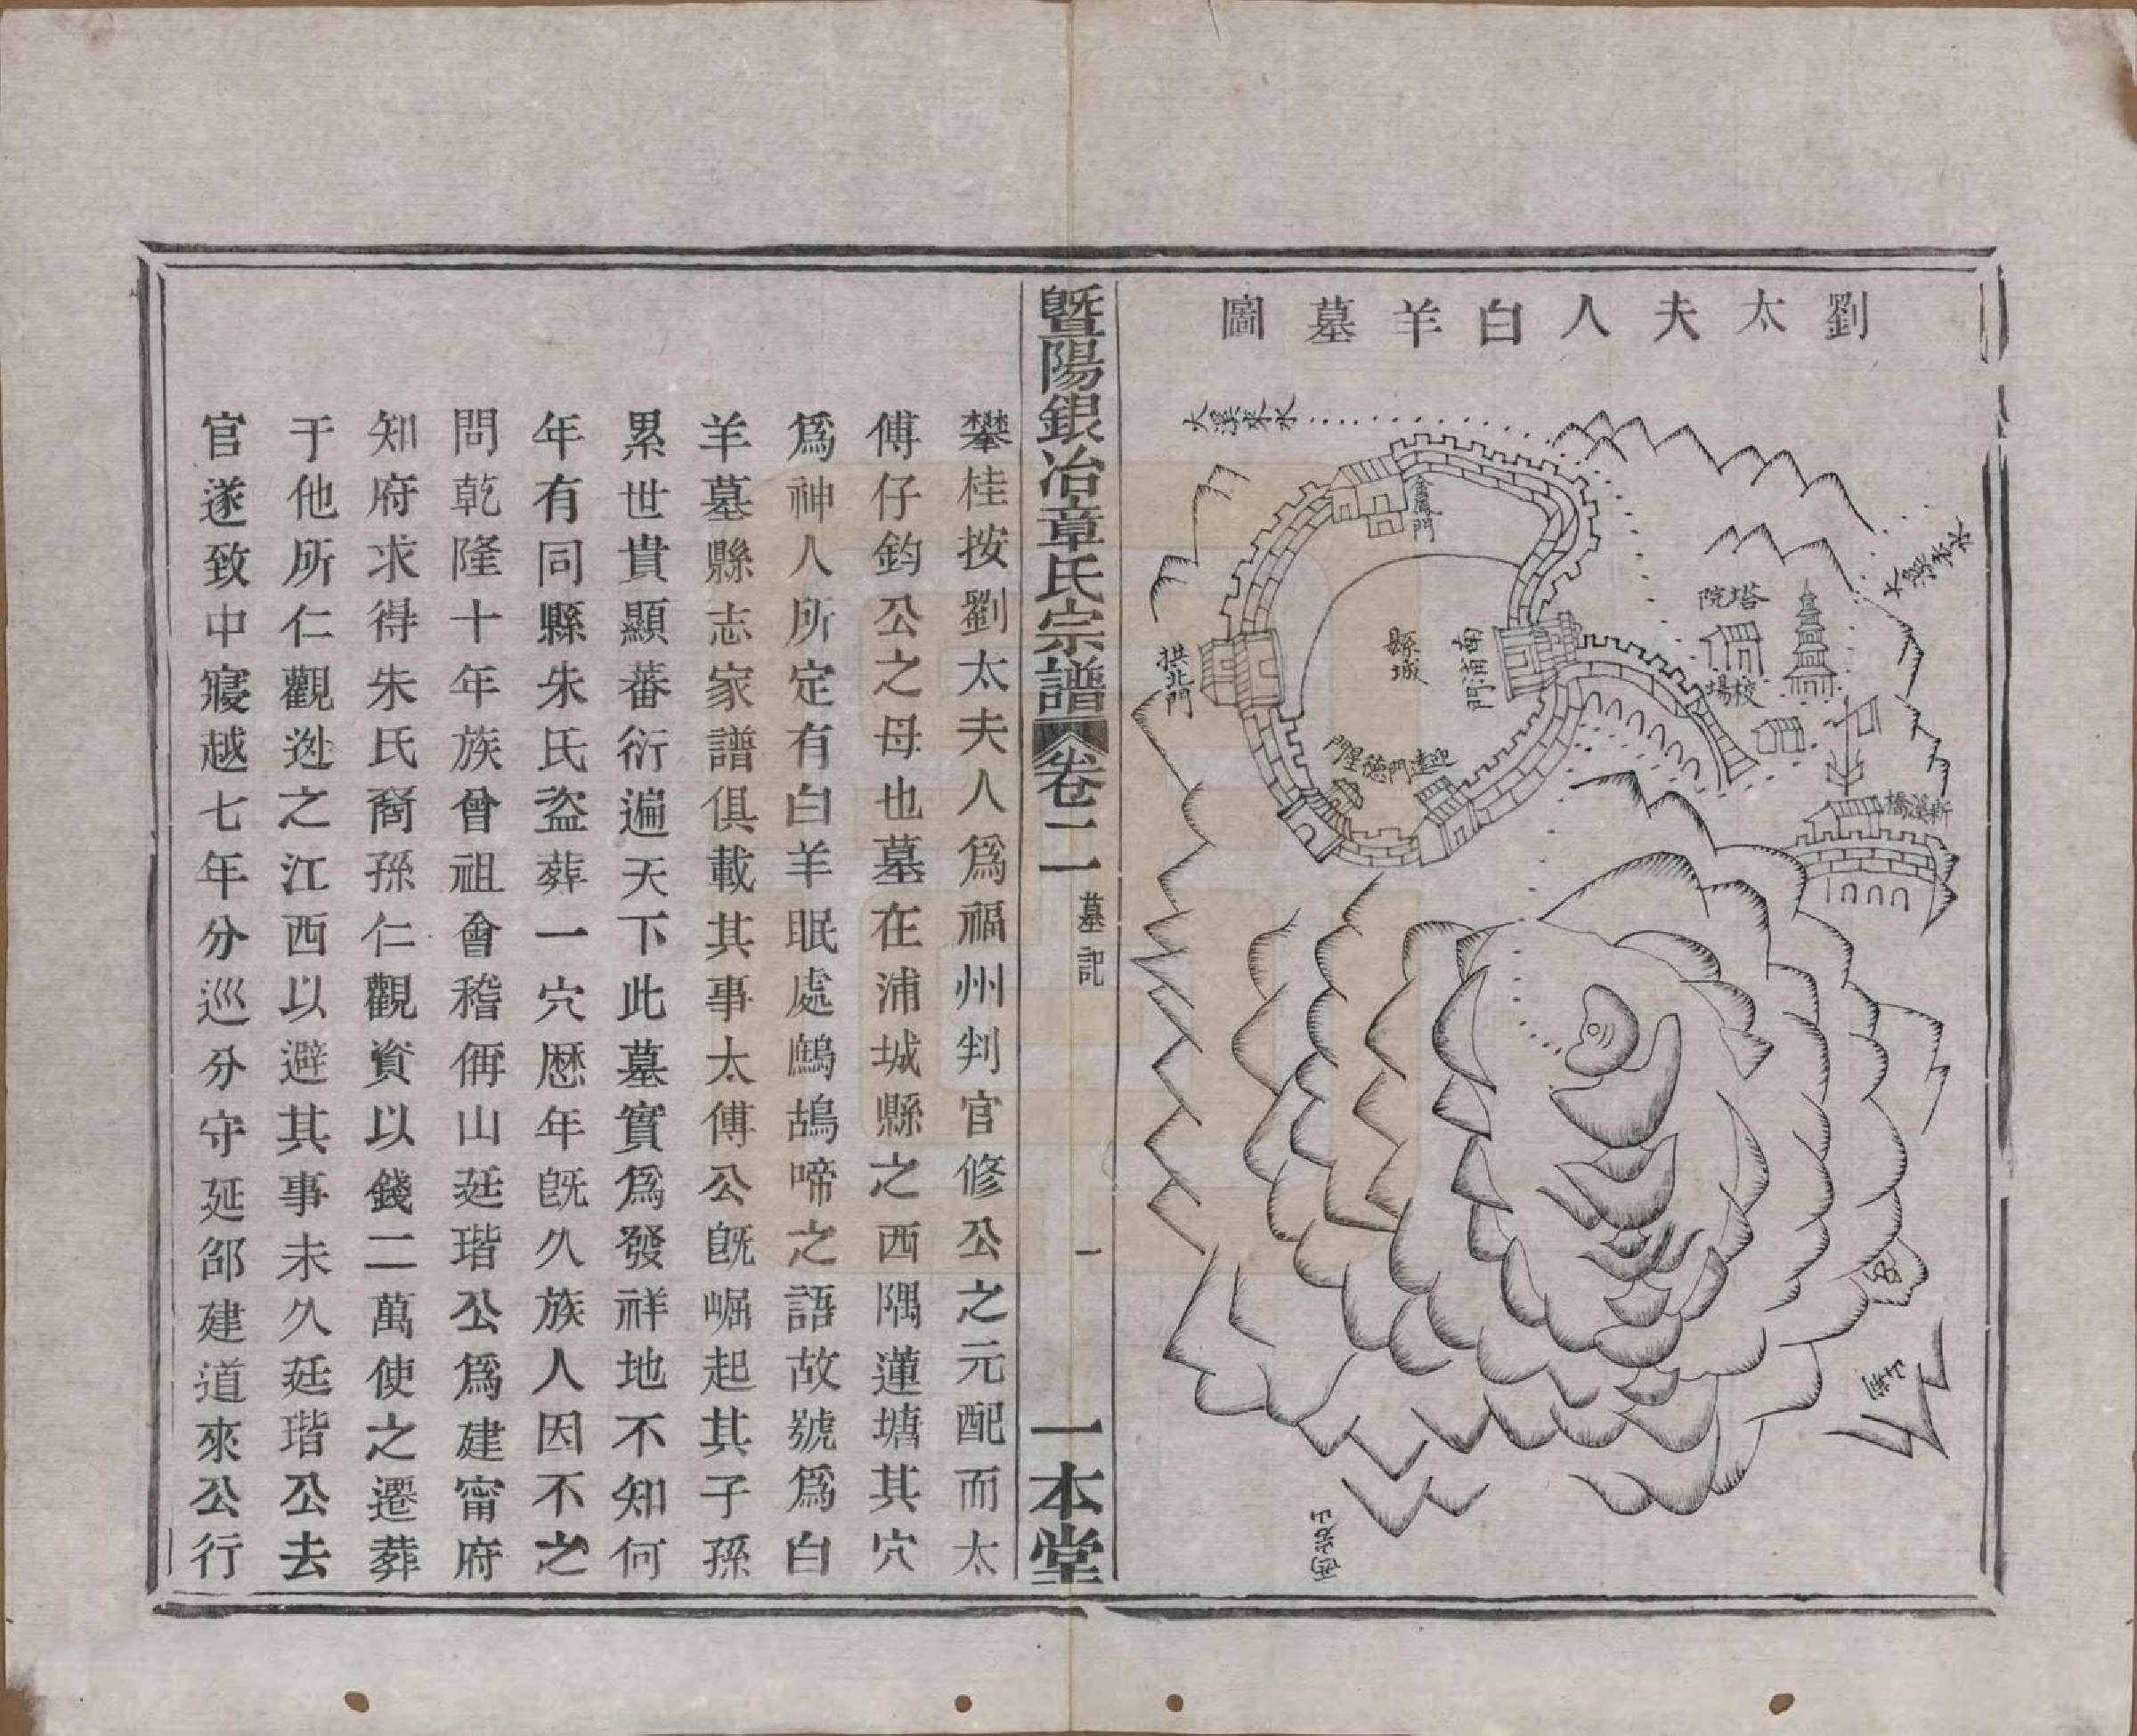 劉太夫人白羊墓圖
大溪來水
金鳳門
大溪去水
塔院
校場
縣城
南浦門
拱北門
德星門
迎遠門
新溪橋
西岩山
暨陽銀冶章氏宗譜
卷二
墓記
一
一本堂
攀桂按劉太夫人爲福州判官修公之元配而太
傅仔鈞公之母也墓在浦城縣之西隅蓮塘其穴
爲神人所定有白羊眠處鷓鴣啼之語故號爲白
羊墓縣志家譜俱載其事太傅公旣崛起其子孫
累世貴顯蕃衍遍天下此墓實爲發祥地不知何
年有同縣朱氏盜葬一穴歷年旣久族人因不之
問乾隆十年族曾祖會稽偁山廷瑎公爲建甯府
知府求得朱氏裔孫仁觀資以錢二萬使之遷葬
于他所仁觀迯之江西以避其事未久廷瑎公去
官遂致中寢越七年分巡分守延邵建道來公行